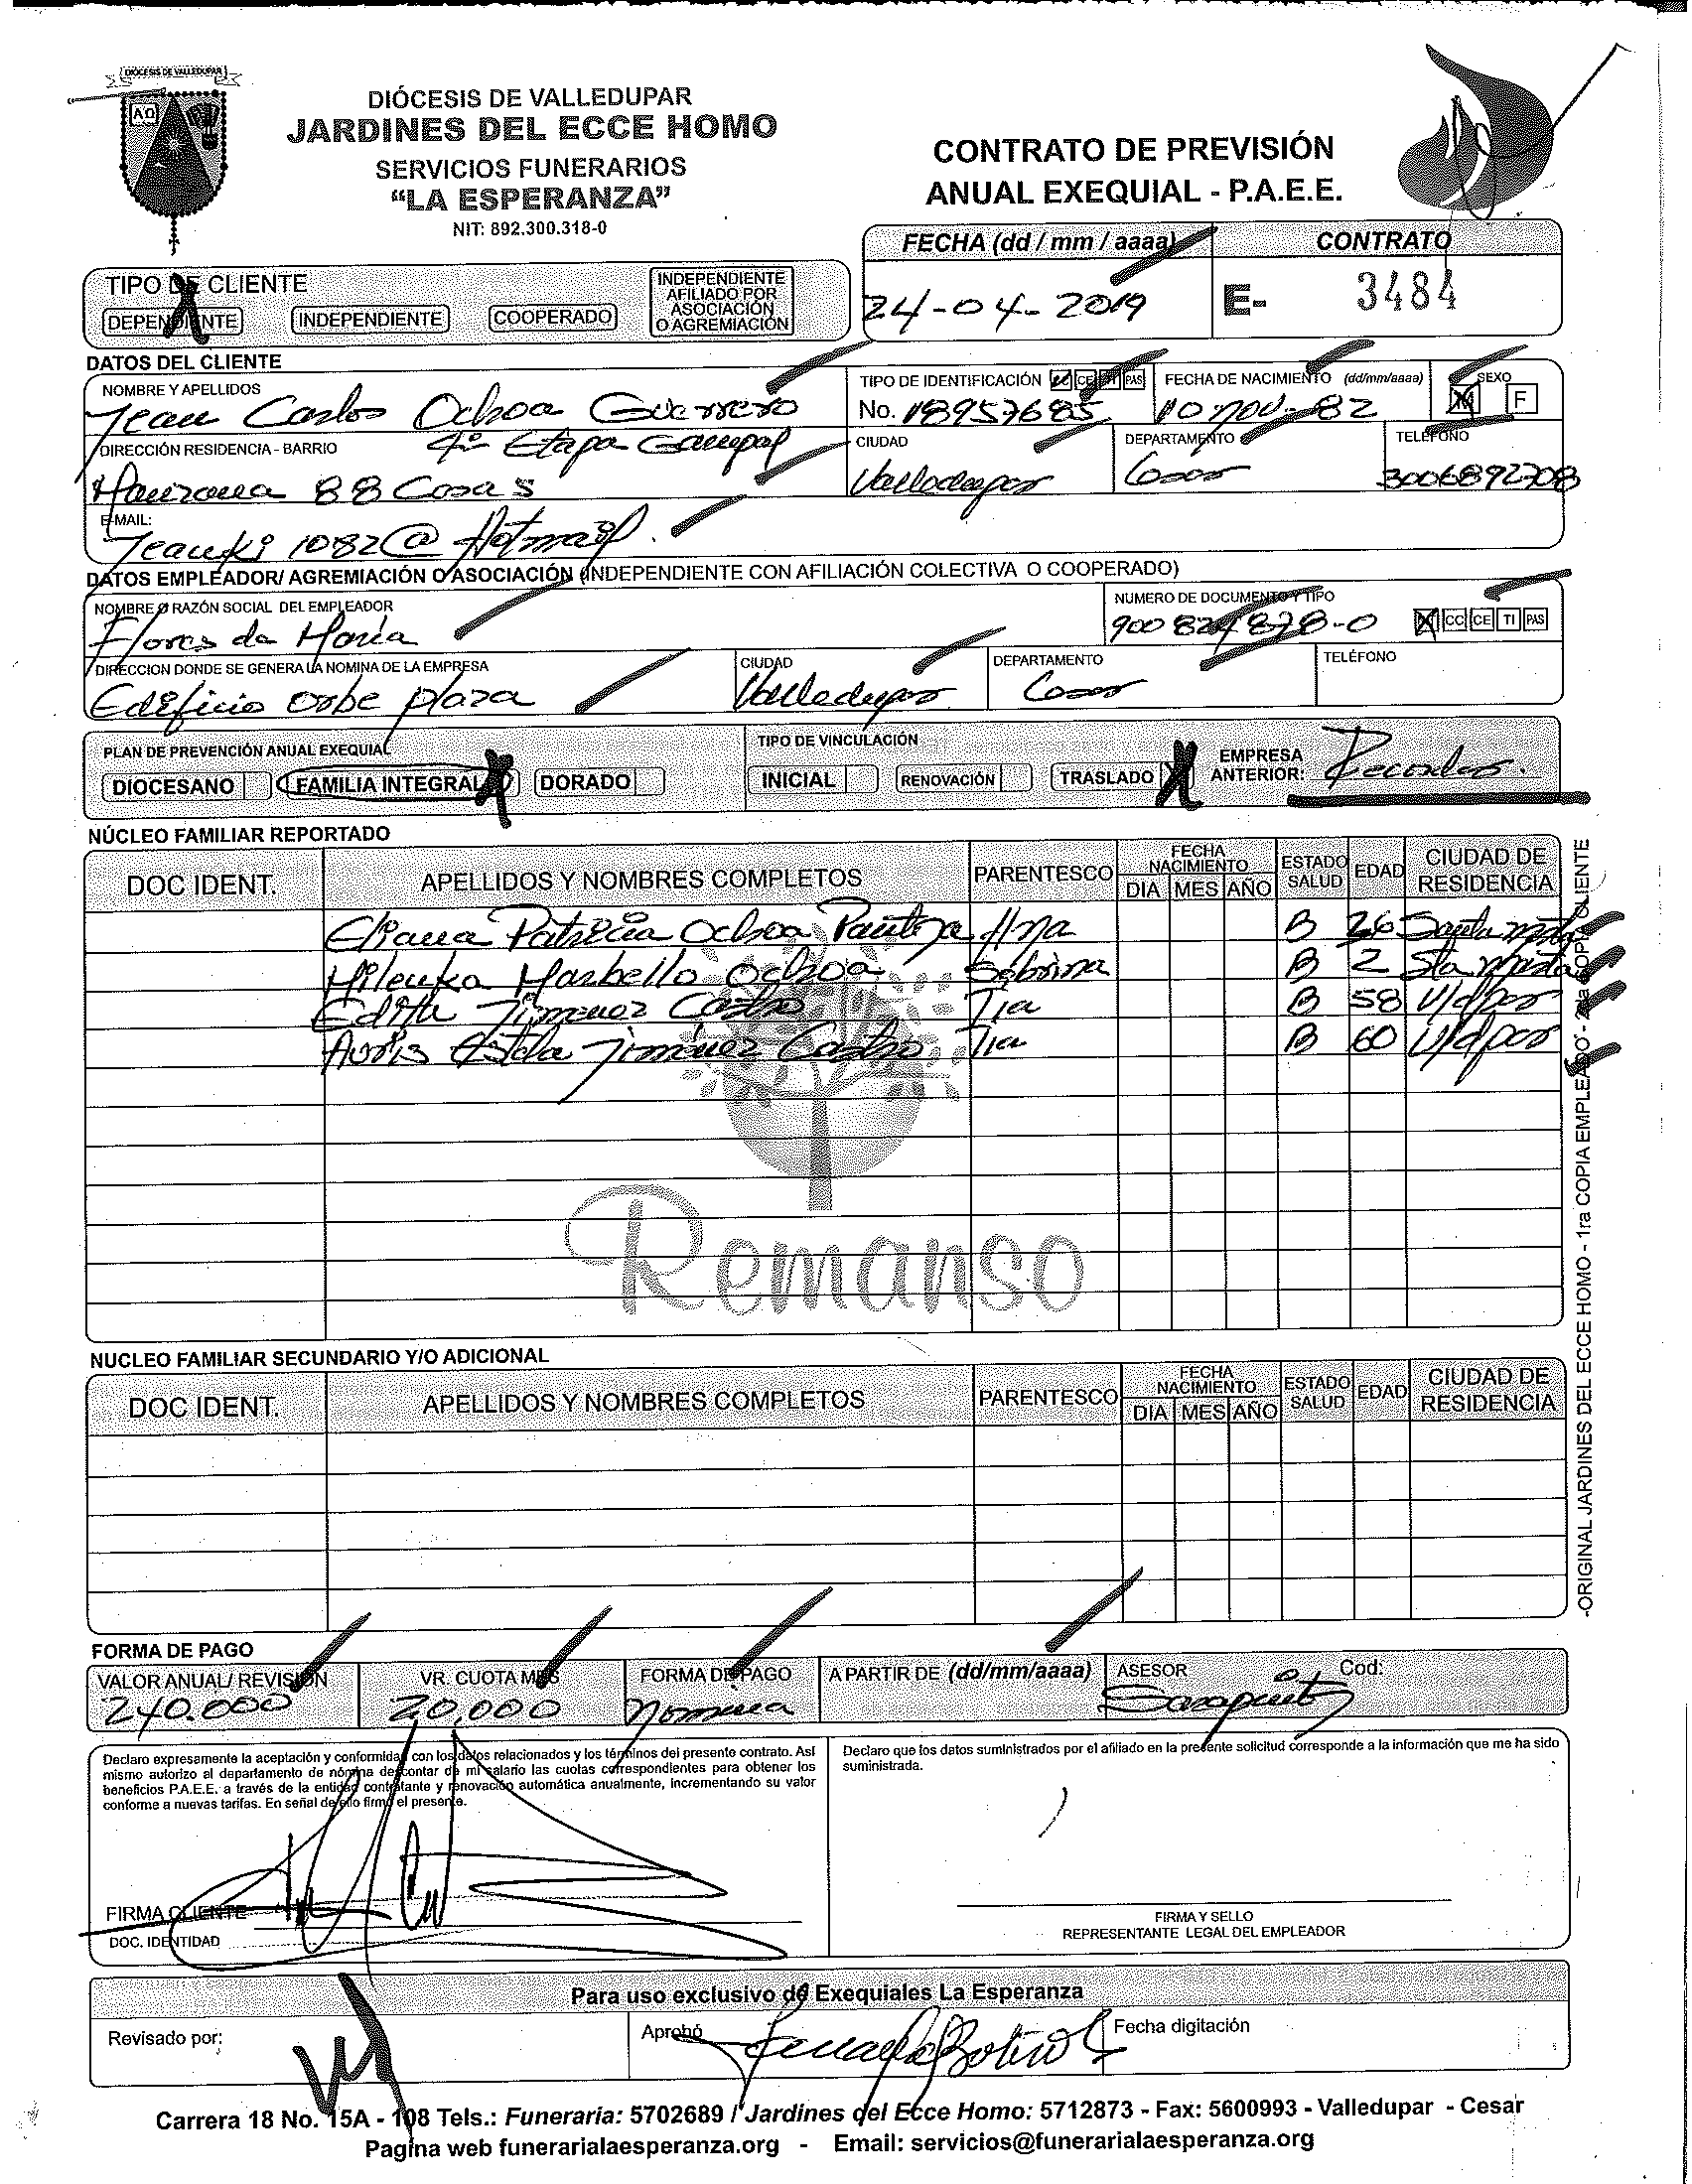 DIÓCESIS DE VALLEDUPAR
ΑΩ
DIÓCESIS DE VALLEDUPAR
JARDINES DEL ECCE HOMO
SERVICIOS FUNERARIOS
“LA ESPERANZA”
NIT: 892.300.318-0
CONTRATO DE PREVISIÓN
ANUAL EXEQUIAL - P.A.E.E.
FECHA (dd / mm / aaaa) CONTRATO
24-04-2019 E- 3484
TIPO DE CLIENTE
DEPENDIENTE INDEPENDIENTE COOPERADO INDEPENDIENTE AFILIADO POR ASOCIACIÓN O AGREMIACIÓN
DATOS DEL CLIENTE
NOMBRE Y APELLIDOS TIPO DE IDENTIFICACIÓN CE TI PAS FECHA DE NACIMIENTO (dd/mm/aaaa) SEXO
Jean Carlos Ochoa Guerrero No. 18957685 10 nov-82 M F
DIRECCIÓN RESIDENCIA - BARRIO 4ª Etapa Garupal CIUDAD DEPARTAMENTO TELÉFONO
Manzana 88 Casa 5 Valledupar Cesar 3006892708
E-MAIL:
Jeanki1082@Hotmail.
DATOS EMPLEADOR/ AGREMIACIÓN O ASOCIACIÓN (INDEPENDIENTE CON AFILIACIÓN COLECTIVA O COOPERADO)
NOMBRE O RAZÓN SOCIAL DEL EMPLEADOR NUMERO DE DOCUMENTO Y TIPO
Flores de María 900 824 878-0 CC CE TI PAS
DIRECCION DONDE SE GENERA LA NOMINA DE LA EMPRESA CIUDAD DEPARTAMENTO TELÉFONO
Edificio Orbe plaza Valledupar Cesar
PLAN DE PREVENCIÓN ANUAL EXEQUIAL TIPO DE VINCULACIÓN
DIOCESANO FAMILIA INTEGRAL DORADO INICIAL RENOVACIÓN TRASLADO EMPRESA ANTERIOR: Recordar.
NÚCLEO FAMILIAR REPORTADO
DOC IDENT. APELLIDOS Y NOMBRES COMPLETOS PARENTESCO FECHA NACIMIENTO DIA MES AÑO ESTADO SALUD EDAD CIUDAD DE RESIDENCIA
Eliana Patricia Ochoa Pantoja Hna B 26 Santa mta
Milenka Marbello Ochoa Sobrina B 2 Sta mta
Edith Jimenez Castro Tia B 58 V/dpar
Auris Estela Jiménez Castro Tia B 60 V/dpar
Remanso
NUCLEO FAMILIAR SECUNDARIO Y/O ADICIONAL
DOC IDENT. APELLIDOS Y NOMBRES COMPLETOS PARENTESCO FECHA NACIMIENTO DIA MES AÑO ESTADO SALUD EDAD CIUDAD DE RESIDENCIA
-ORIGINAL JARDINES DEL ECCE HOMO - 1ra COPIA EMPLEADO - 2da COPIA CLIENTE
FORMA DE PAGO
VALOR ANUAL/ REVISIÓN VR. CUOTA MES FORMA DE PAGO A PARTIR DE (dd/mm/aaaa) ASESOR Cod:
240.000 20,000 nomina
Declaro expresamente la aceptación y conformidad con los datos relacionados y los términos del presente contrato. Así
mismo autorizo al departamento de nómina descontar de mi salario las cuotas correspondientes para obtener los
beneficios P.A.E.E. a través de la entidad contratante y renovación automática anualmente, incrementando su valor
conforme a nuevas tarifas. En señal de ello firmo el presente.
Declaro que los datos suministrados por el afiliado en la presente solicitud corresponde a la información que me ha sido
suministrada.
FIRMA CLIENTE
DOC. IDENTIDAD
FIRMA Y SELLO
REPRESENTANTE LEGAL DEL EMPLEADOR
Para uso exclusivo de Exequiales La Esperanza
Revisado por: Aprobó Fecha digitación
Carrera 18 No. 15A - 108 Tels.: Funeraria: 5702689 / Jardines del Ecce Homo: 5712873 - Fax: 5600993 - Valledupar - Cesar
Pagina web funerarialaesperanza.org - Email: servicios@funerarialaesperanza.org